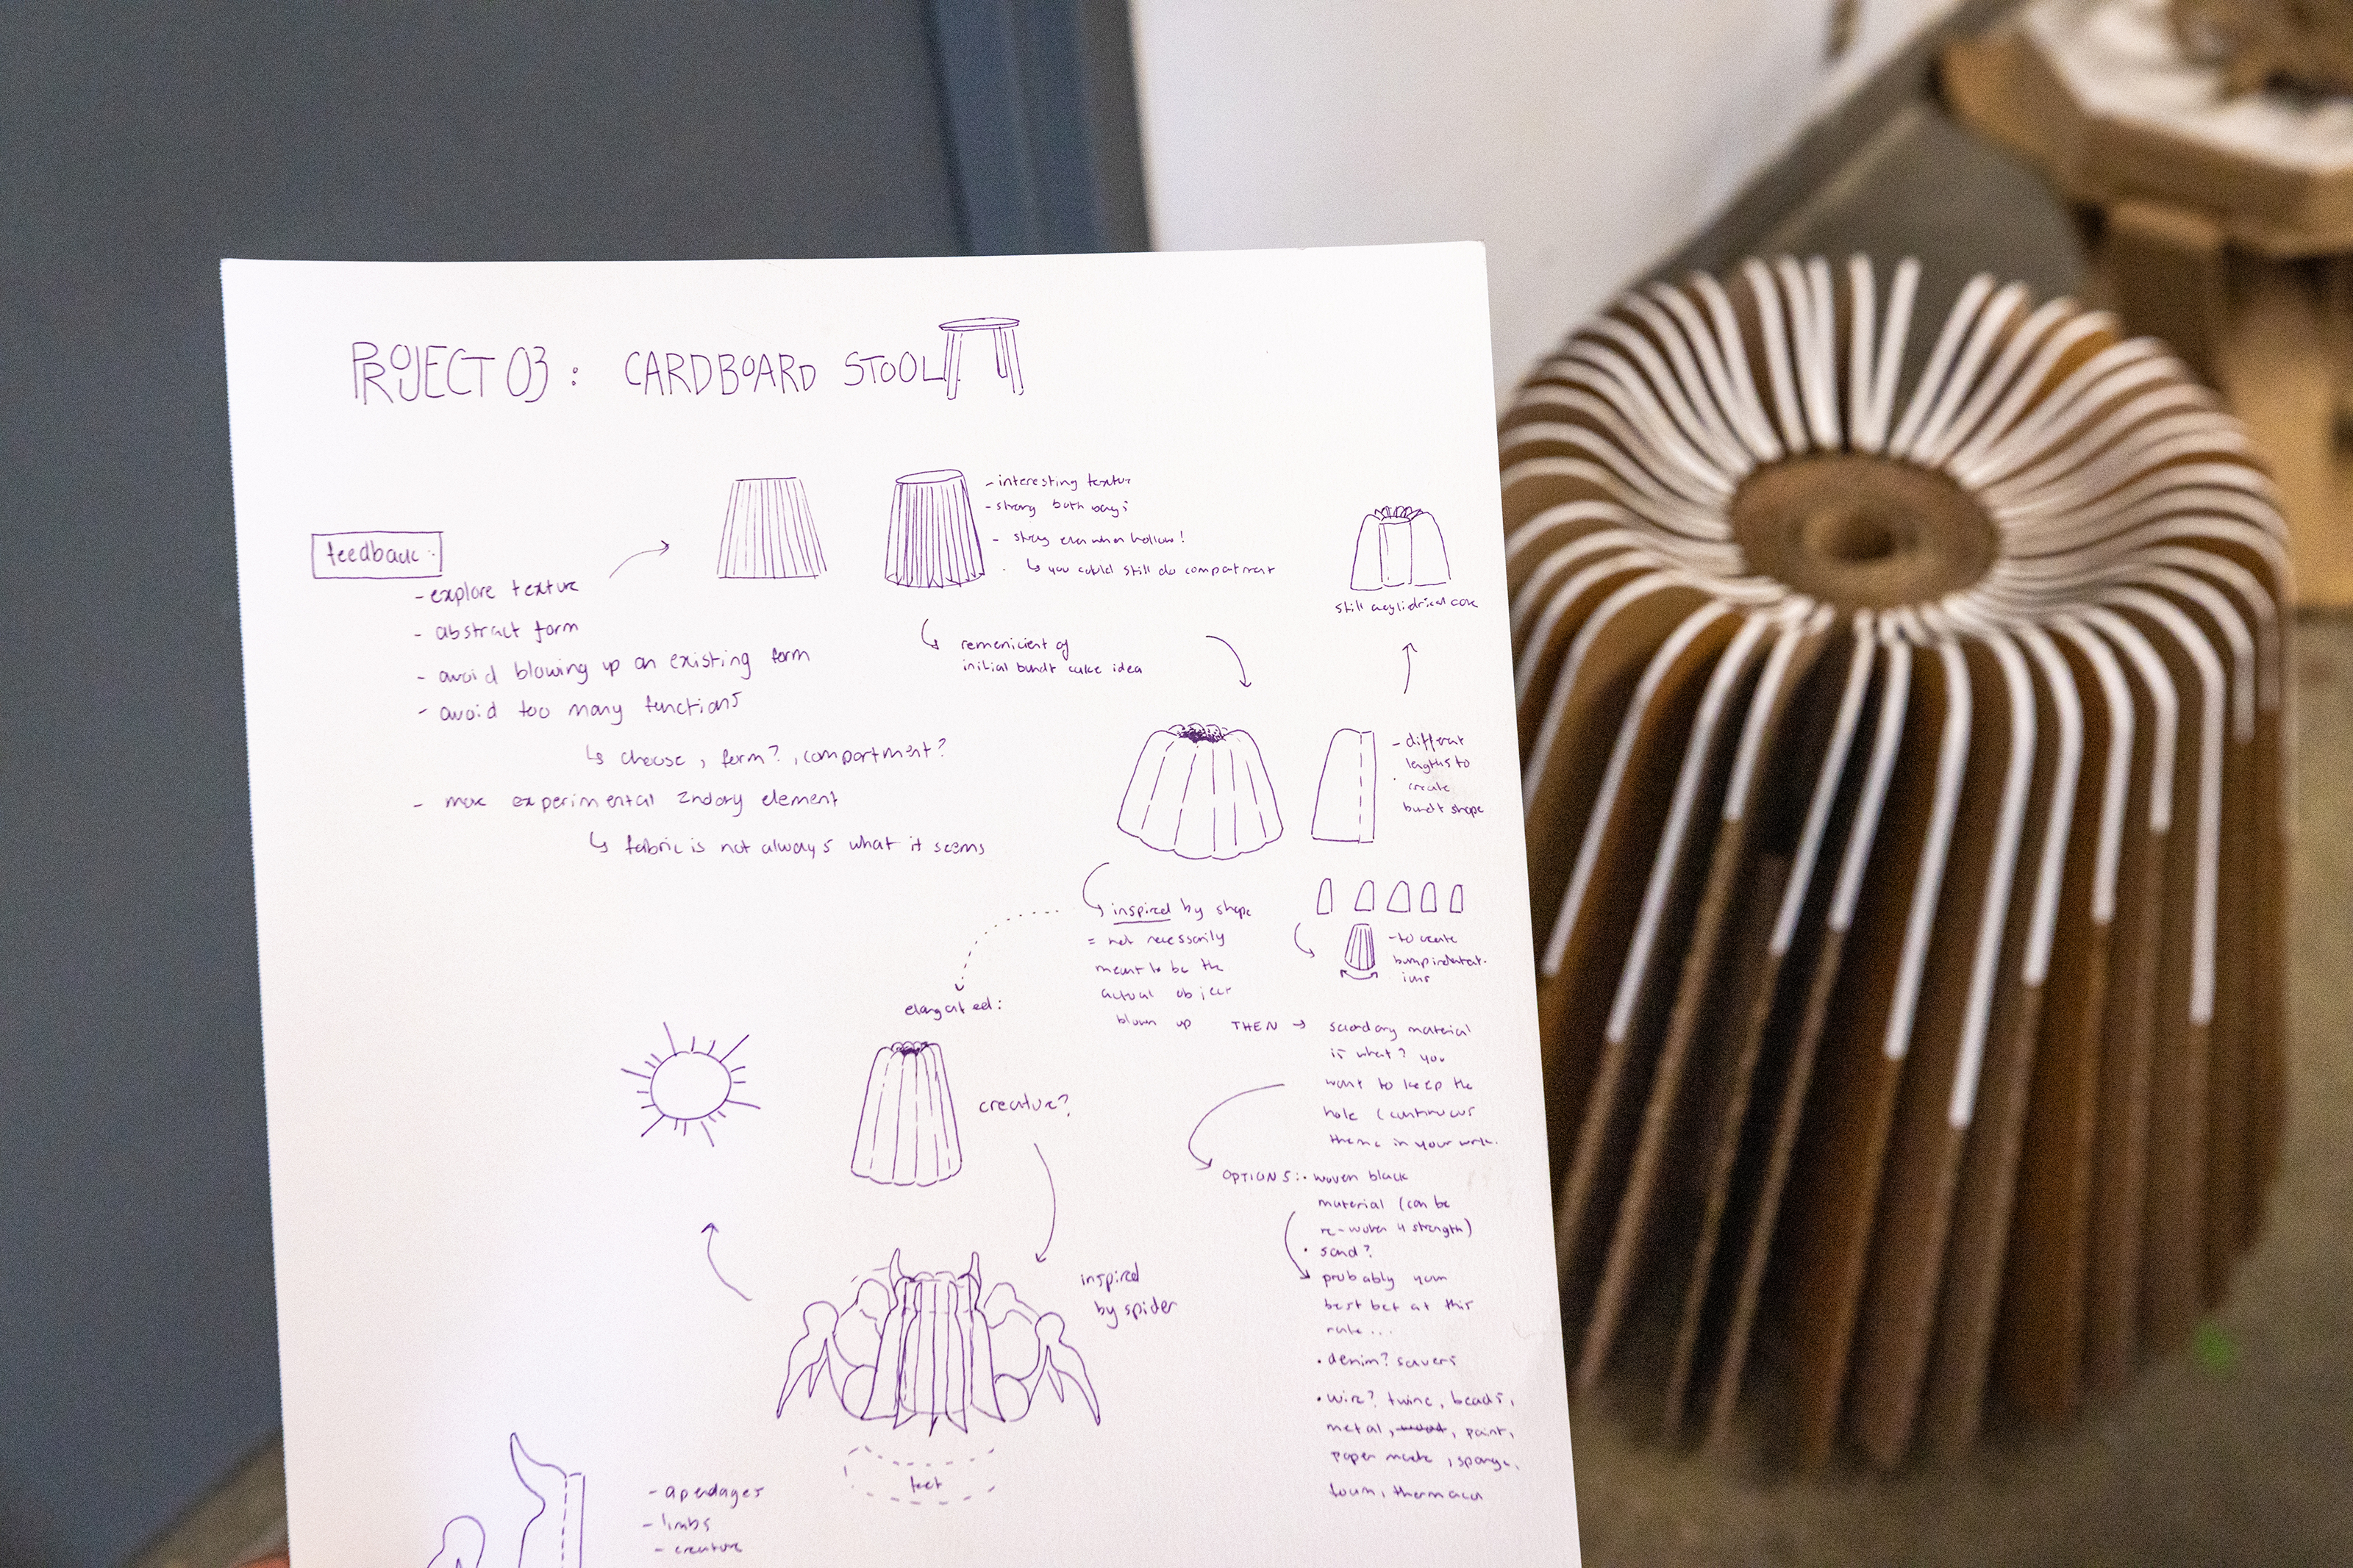 PROJECT 03 : CARDBOARD STOOL
feedback:
- explore texture
- abstract form
- avoid blowing up an existing form
- avoid too many functions
↳ choose, form?, compartment?
- more experimental 2ndary element
↳ fabric is not always what it seems
- interesting texture
- strong both ways
- strong even when hollow!
↳ you could still do compartment
↳ remenicient of
initial bundt cake idea
still a cylidrical core
- different
lengths to
create
bundt shape
inspired by shape
= not necessarily
meant to be the
actual object
blown up
- to create
bump indentat-
ions
elongated:
creature?
THEN → secondary material
is what? you
want to keep the
hole (continuous
theme in your work.
OPTIONS: • woven black
material (can be
re-woven 4 strength)
• sand?
probably your
best bet at this
rate...
• denim? savers
• wire? twine, beads,
metal, wood, paint,
paper mache, sponge,
foam,
inspired
by spider
feet
- apendages
- limbs
- creature